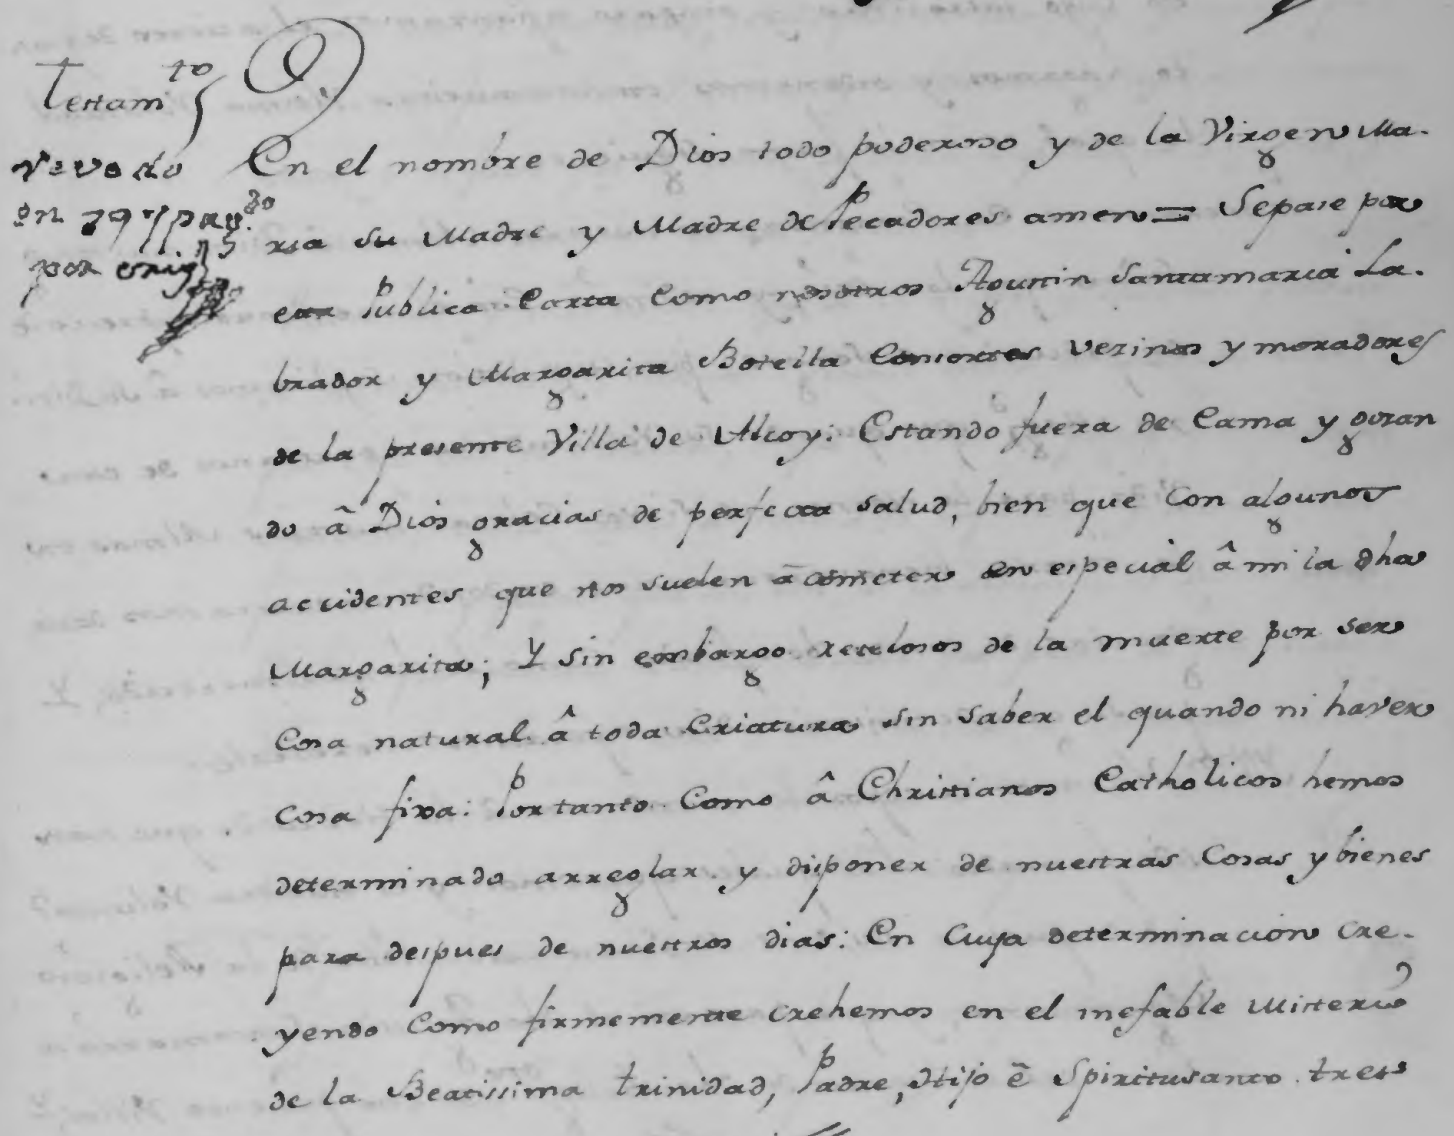 Testam.to
En el nombre de Dios todo poderoso y de la Virgen Ma-
ria su Madre y Madre de Pecadores amen = Sepase por
esta Publica Carta como nosotros Agustin Santamaria La-
brador y Margarita Botella Consortes Vezinos y moradores
de la presente Villa de Alcoy: Estando fuera de Cama y gozan
do â Dios gracias de perfecta salud, bien que con algunos
accidentes que nos suelen acometer en especial â mi la dha
Margarita; Y sin embargo rezelosos de la muerte por ser
Cosa natural â toda Criatura sin saber el quando ni haver
cosa fixa: Por tanto Como â Christianos Catholicos hemos
determinado arreglar y disponer de nuestras Cosas y bienes
para despues de nuestros dias: En Cuya determinacion cre-
yendo Como firmemente crehemos en el inefable Misterio
de la Beatissima trinidad, Padre, Hijo ê Spiritusanto tres